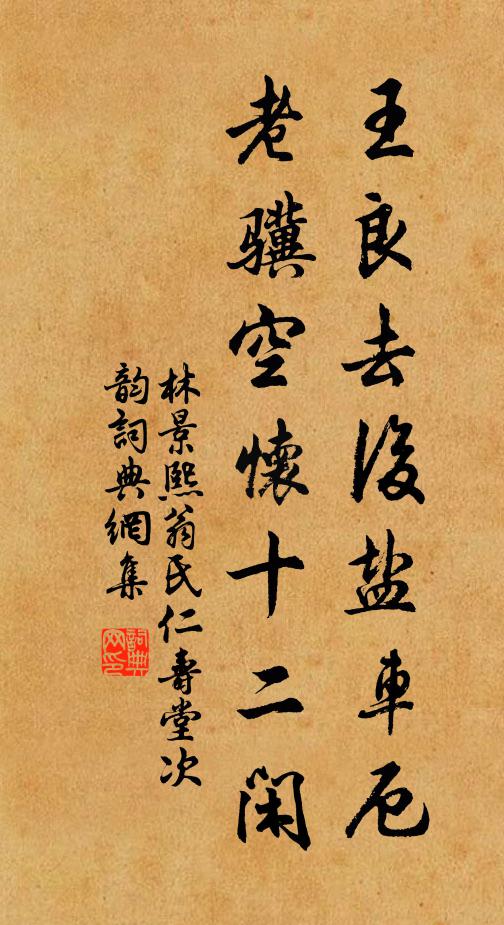 王良去後盐車厄
老驥空懷十二閑
林景熙翁氏仁壽堂次
韵詞典網集
詞典网印